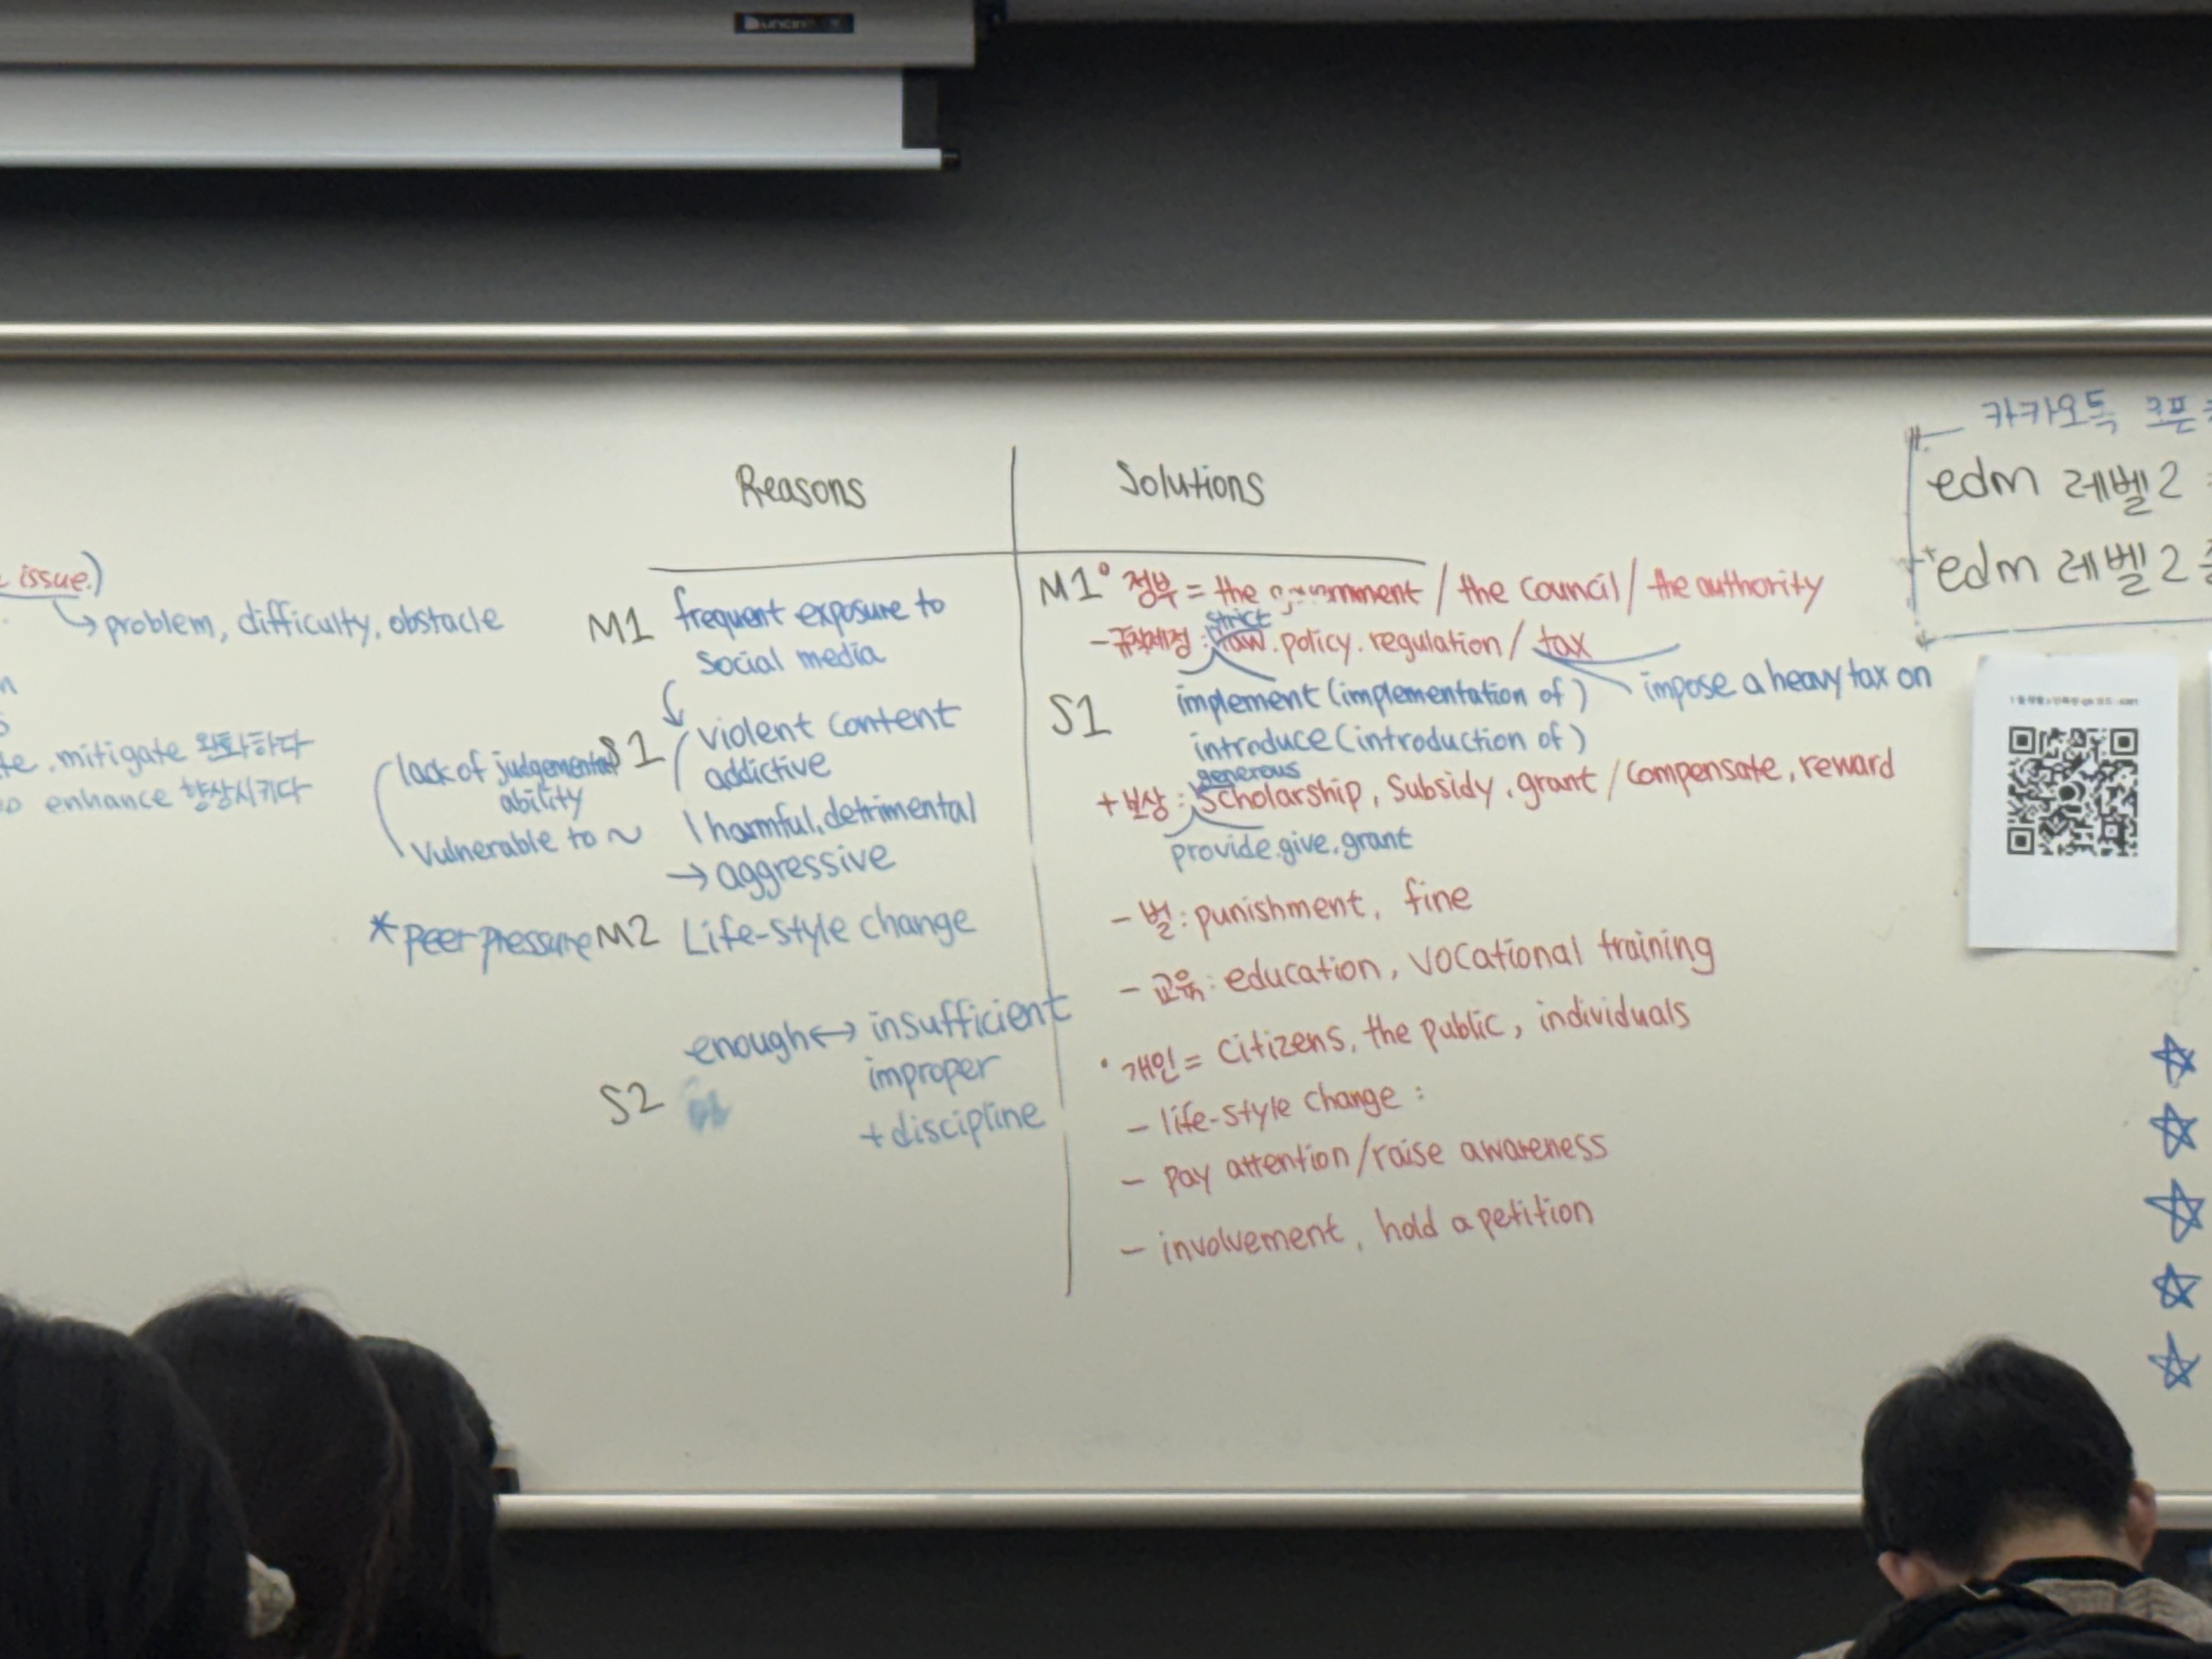 issue.)
↳ problem, difficulty, obstacle
mitigate 완화하다
enhance 향상시키다
Reasons
M1 frequent exposure to
social media
S1 violent content
addictive
harmful, detrimental
→ aggressive
lack of judgemental
ability
Vulnerable to ~
*peer pressure
M2 Life-style change
S2 enough ↔ insufficient
improper
+ discipline
Solutions
M1 ° 정부 = the government / the council / the authority
strict
- 규칙제정 : law. policy. regulation / tax
impose a heavy tax on
S1 implement (implementation of )
introduce (introduction of )
generous
+ 보상 : Scholarship, Subsidy, grant / compensate, reward
provide. give. grant
- 벌 : punishment, fine
- 교육 : education, vocational training
• 개인 = citizens, the public, individuals
- life-style change :
- pay attention / raise awareness
- involvement, hold a petition
카카오톡 오픈
edm 레벨2
edm 레벨2